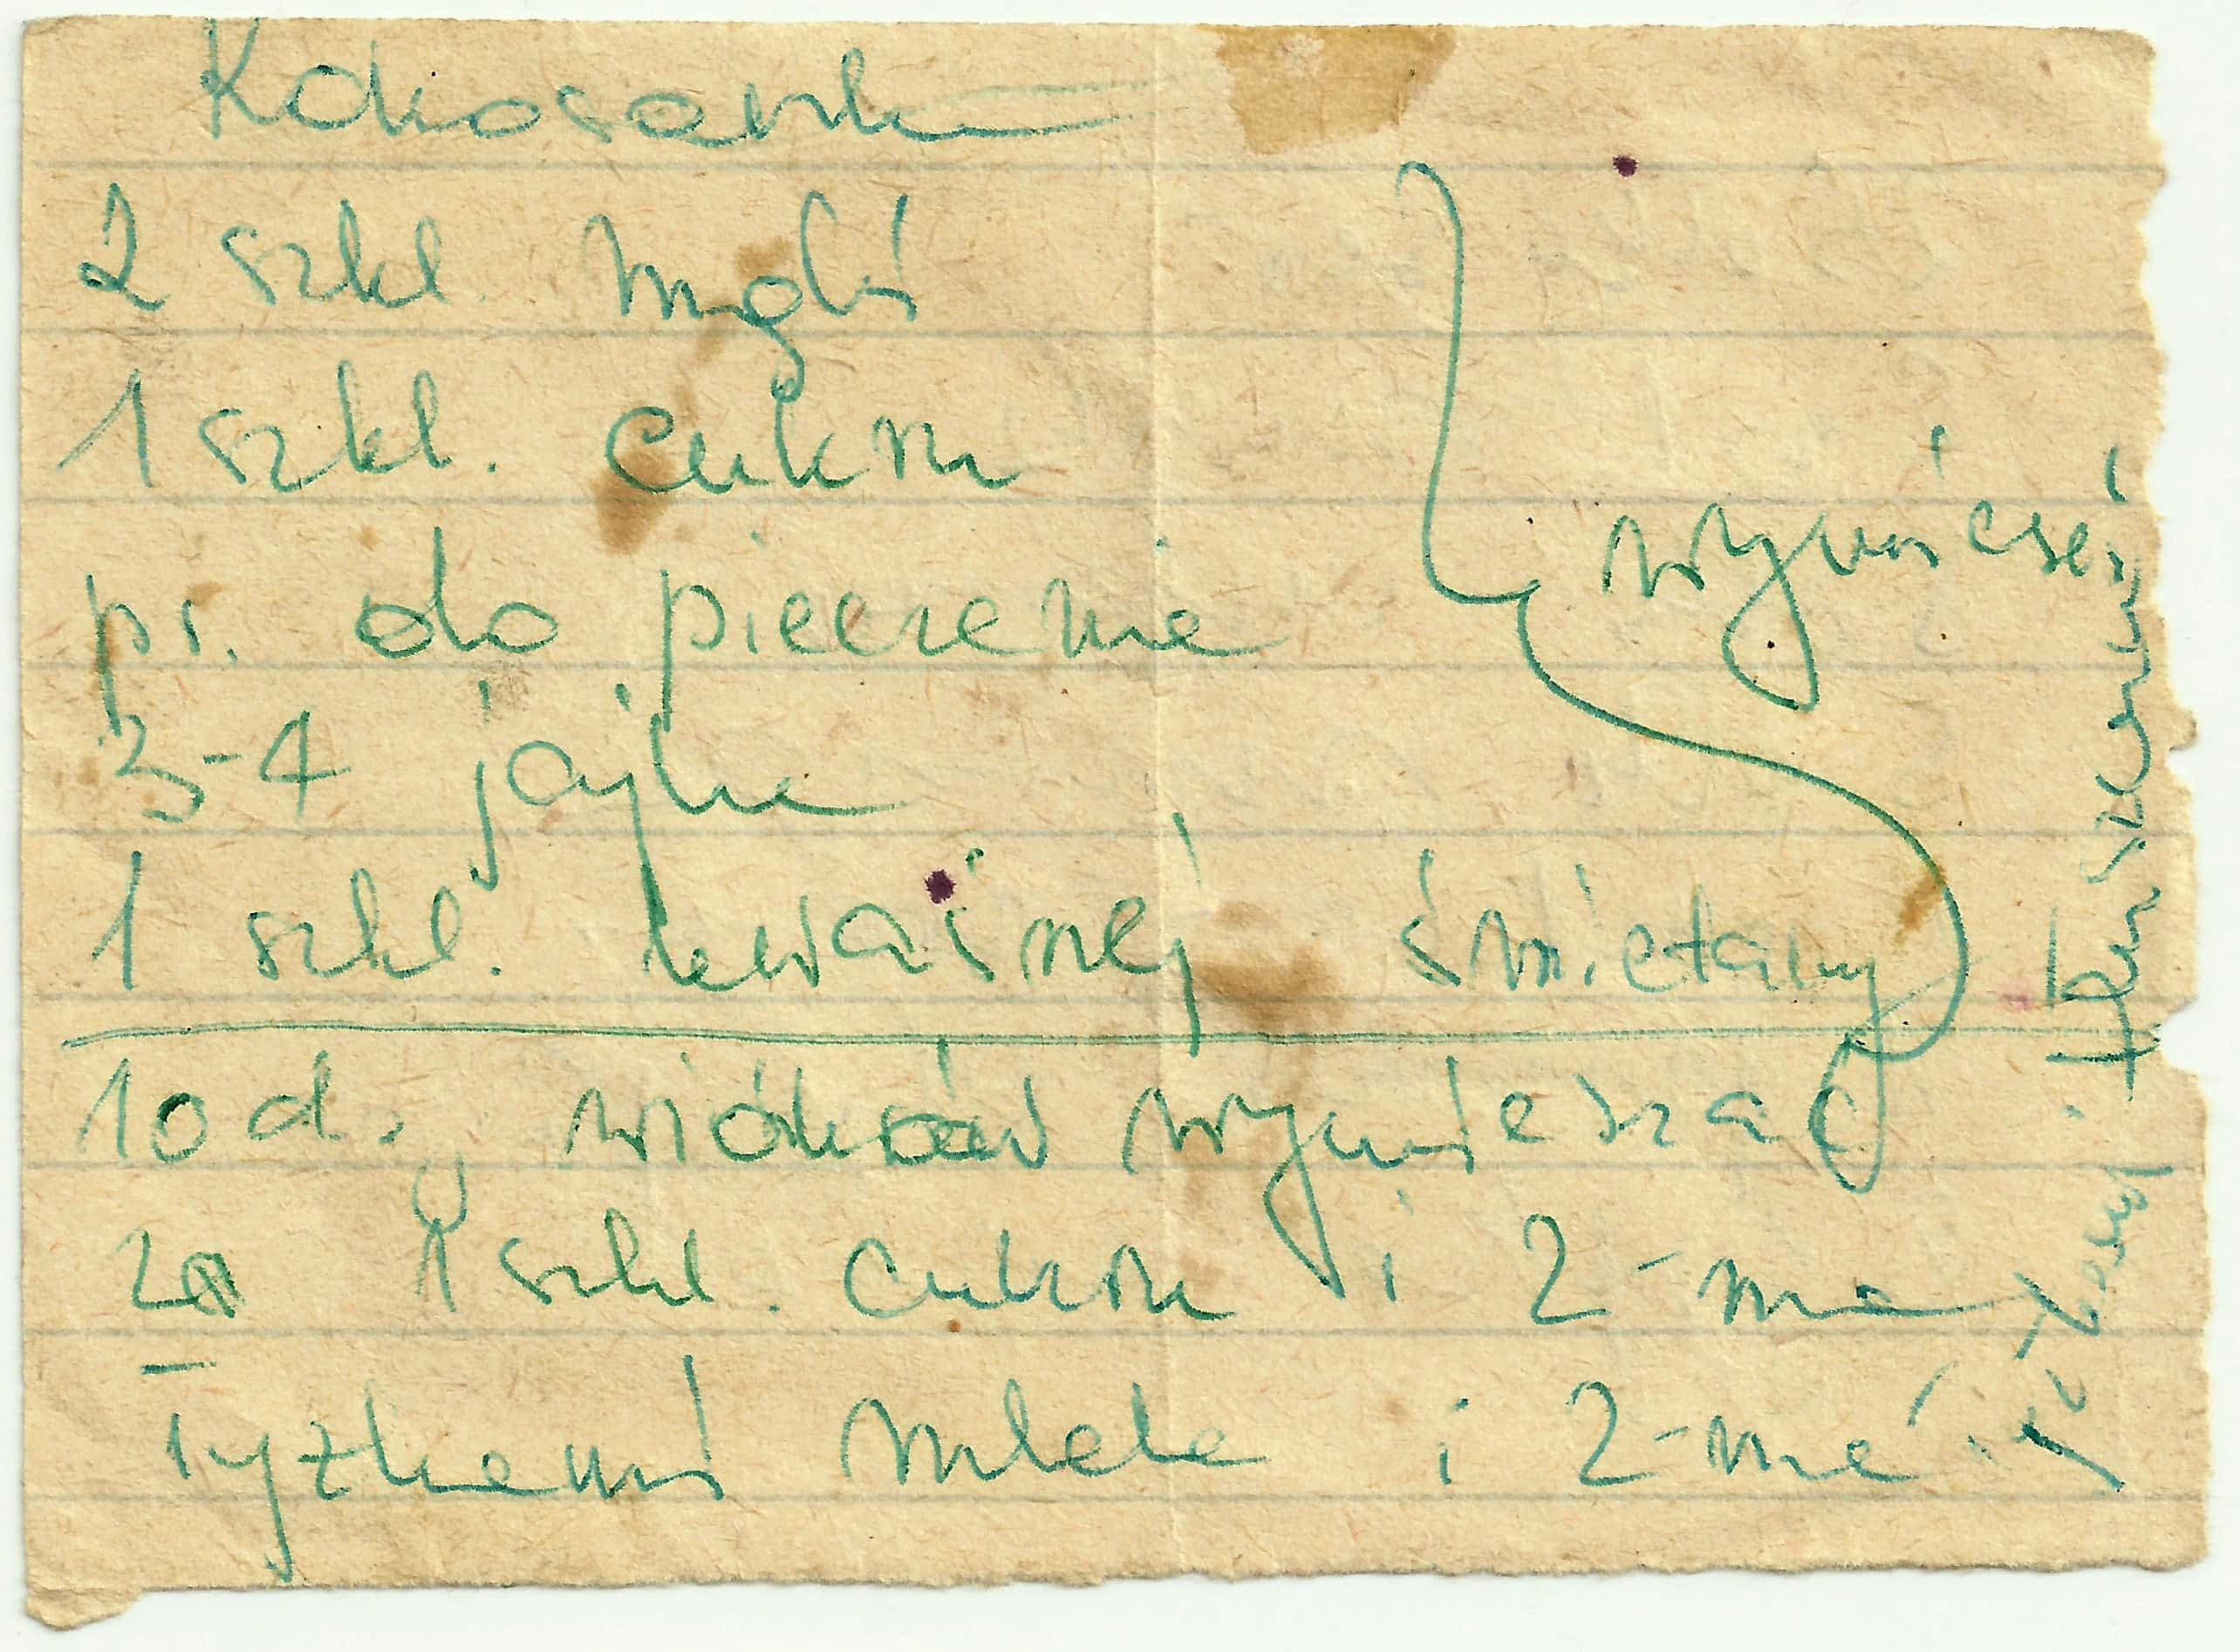 Kokosanka
2 szkl. mąki
1 szkl. cukru
pr. do pieczenia
3-4 jajka
1 szkl. kwaśnej śmietany
wymieszać
10 d. wiórków wymieszać
za 1 szkl. cukru i 2-ma
łyżkami mleka i 2-ma
łyżkami